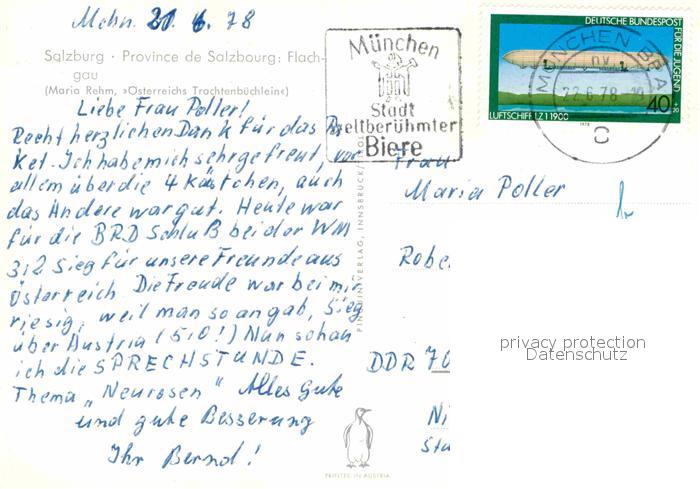 Mchn. 21. 6. 78
Salzburg · Province de Salzbourg: Flach-
gau
(Maria Rehm, »Österreichs Trachtenbüchlein«)
Liebe Frau Poller!
Recht herzlichen Dank für das Pa-
ket. Ich habe mich sehr gefreut, vor
allem über die 4 Kästchen, auch
das Andere war gut. Heute war
für die BRD Schluß bei der WM
3:2 Sieg für unsere Freunde aus
Österreich Die Freude war bei mir
riesig, weil man so angab, Sieg
über Austria (5:0!) Nun schau
ich die SPRECHSTUNDE.
Thema „Neurosen" Alles Gute
und gute Besserung
Ihr Bernd!
PINGUIN-VERLAG, INNSBRUCK/TIROL
PRINTED IN AUSTRIA
München
Stadt
weltberühmter
Biere
DEUTSCHE BUNDESPOST
FÜR DIE JUGEND
40
+20
LUFTSCHIFF LZ 1 1900
1978
MÜNCHEN BPA
22.6.78
C
Frau
Maria Poller
Robe
DDR 70
Ni
Sta
privacy protection
Datenschutz